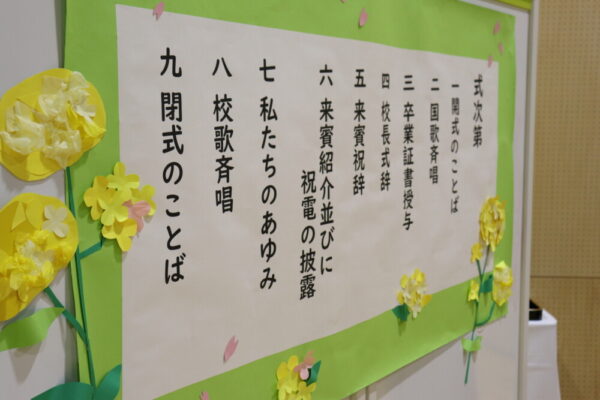 式次第
一 開式のことば
二 国歌斉唱
三 卒業証書授与
四 校長式辞
五 来賓祝辞
六 来賓紹介並びに
祝電の披露
七 私たちのあゆみ
八 校歌斉唱
九 閉式のことば